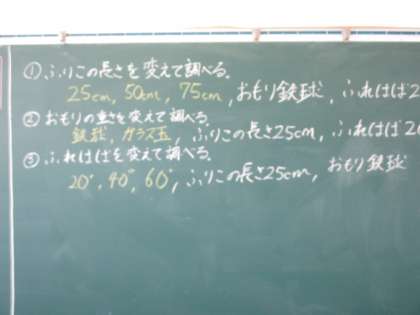 ①ふりこの長さを変えて調べる。
25cm, 50cm, 75cm, おもり鉄球, ふれはば2
②おもりの重さを変えて調べる。
鉄球, ガラス玉, ふりこの長さ25cm, ふれはば20
③ふれはばを変えて調べる。
20°, 40°, 60°, ふりこの長さ25cm, おもり鉄球